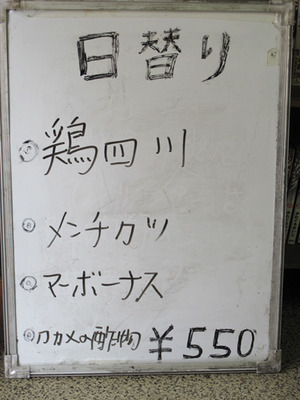 日替り
鶏四川
メンチカツ
マーボーナス
ワカメの酢物 ¥550